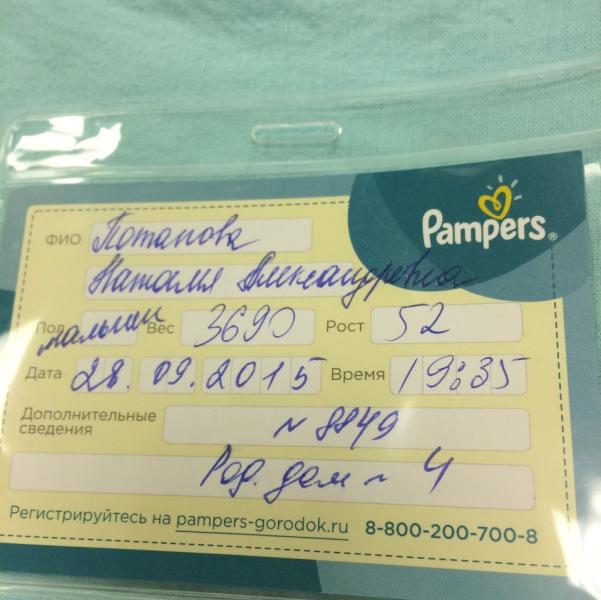 Pampers®
ФИО Потапова
Наталия Александровна
Пол мальчик Вес 3690 Рост 52
Дата 28.09.2015 Время 19:35
Дополнительные
сведения
~ 8849
Род. дом ~ 4
Регистрируйтесь на pampers-gorodok.ru 8-800-200-700-8